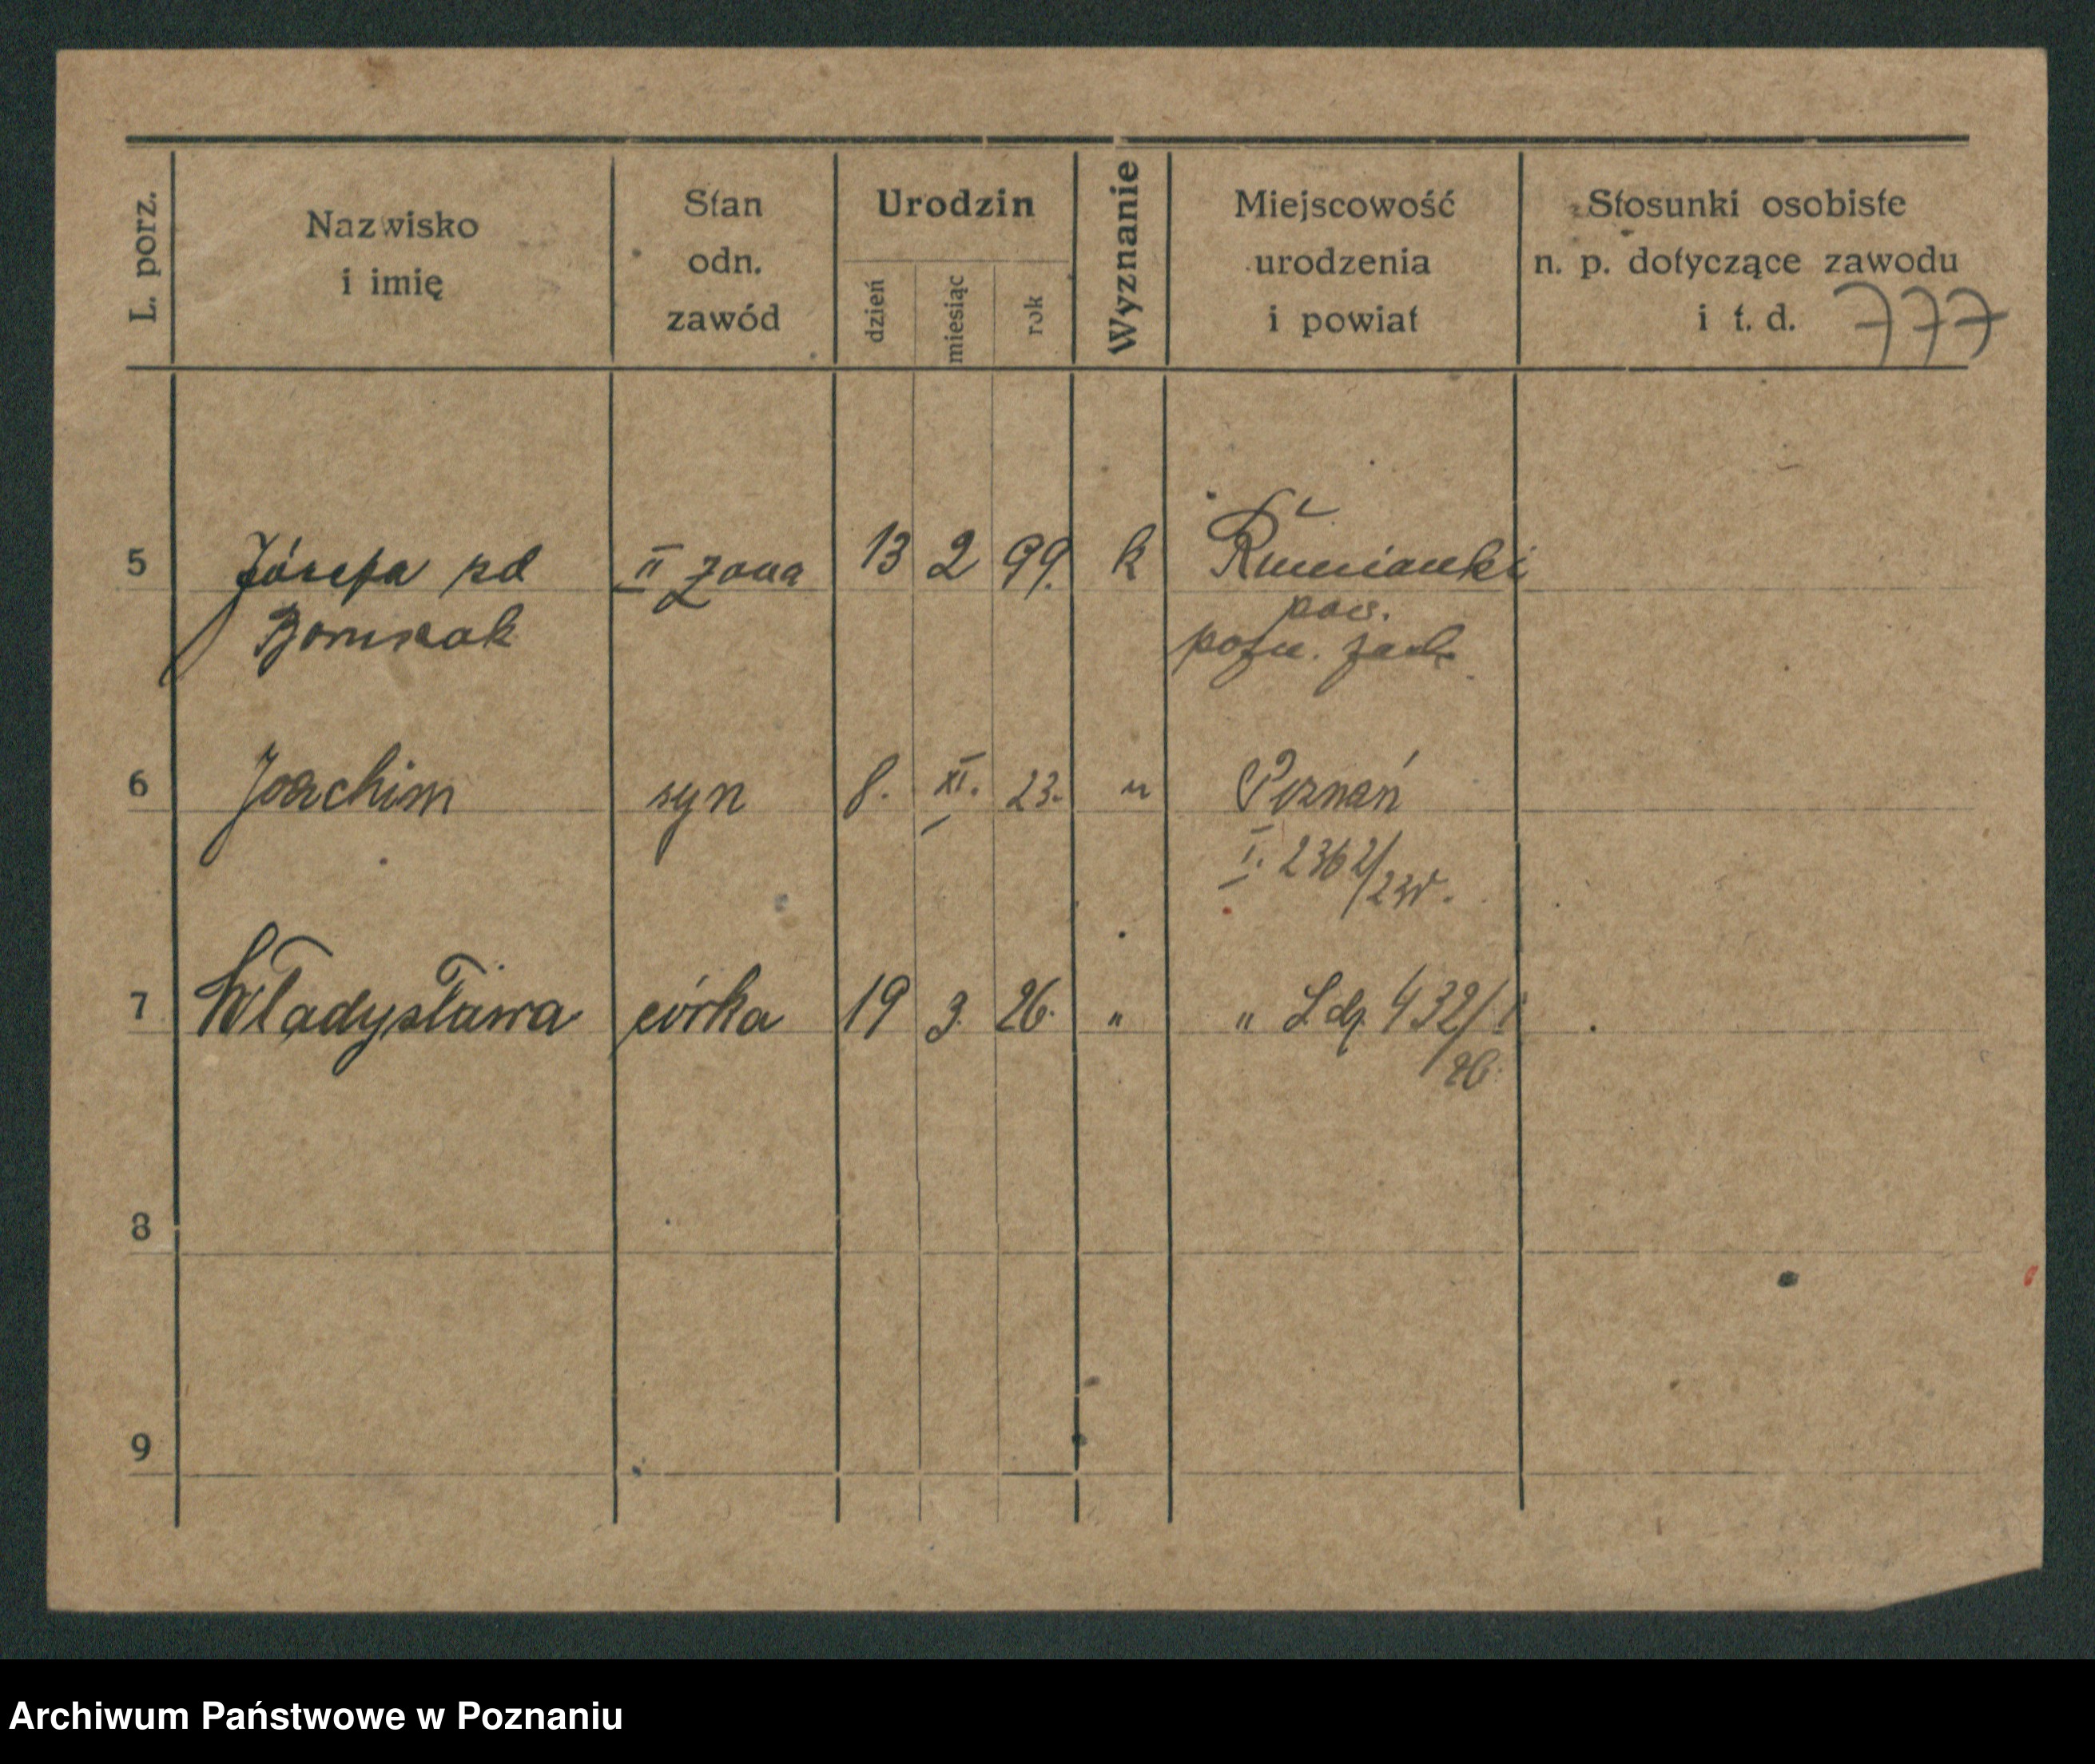 L. porz.
Nazwisko
i imię
Stan
odn.
zawód
Urodzin
dzień
miesiąc
rok
Wyznanie
Miejscowość
urodzenia
i powiat
Stosunki osobiste
n. p. dotyczące zawodu
i t. d. 777
5 Józefa zd II żona 13 2 99. k Rumianki
pow.
pozn. zach.
6 Joachim syn 8. XI. 23. " Poznań
I. 2362/23
7 Władysława córka 19 3. 26. " " 432/
26.
8
9
Archiwum Państwowe w Poznaniu